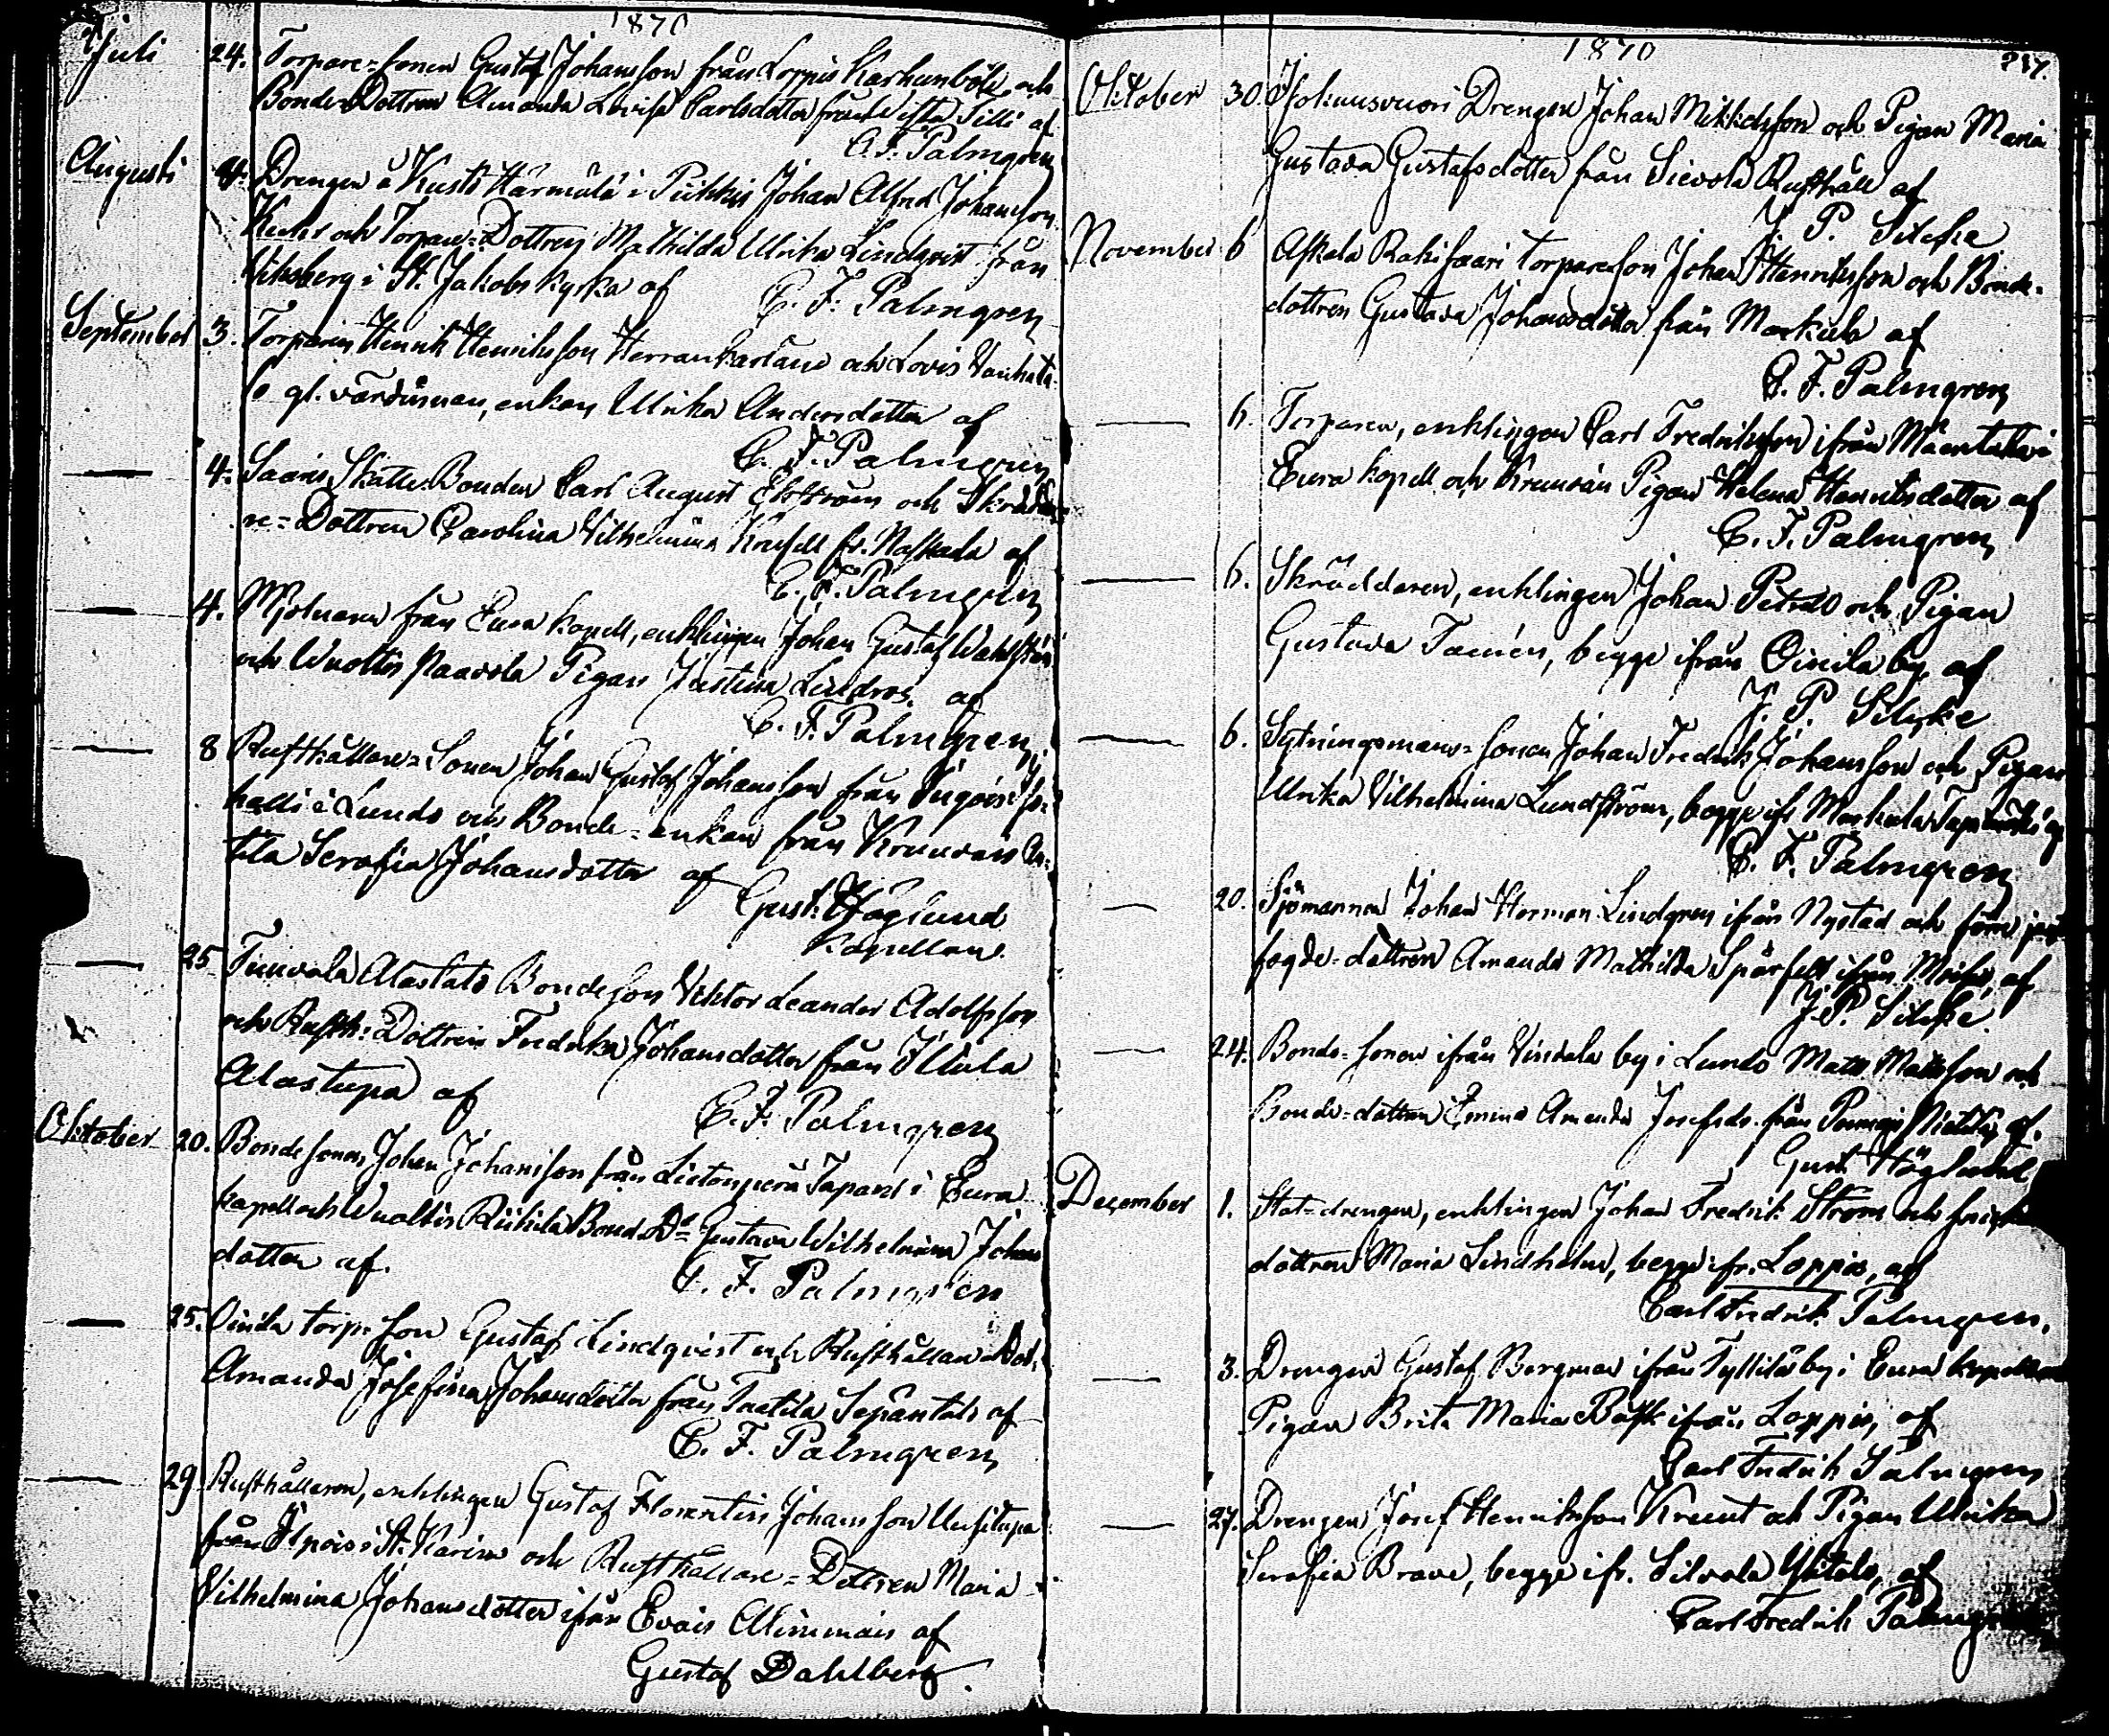 1870
Juli 24. Torpare-sonen Gustaf Johansson från Loppis Karhunböle och
Bonde Dottren Amanda Lovisa Carlsdotter från Vista Silli af
C. F. Palmgren
Augusti 4. Drengen å Kustö Härmälä i Piikkis Johan Alfred Johansson
och Torpare-Dottren Mathilda Ulrika Lindqvist från
Viksberg i St. Jakobs kyrka af C. F. Palmgren
September 3. Torparen Henrik Henriksson Herrankartano och Lovis Vanhata-
lo gl. värdinnan, enkan Ulrika Andersdotter af
C. F. Palmgren
— 4. Saaris Skatte Bonden Carl August Ekström och Skrädda-
re-Dottren Carolina Vilhelmina Krusell fr. Naskala af
C. F. Palmgren
— 4. Mjölnaren från Eura kapell, enklingen Johan Gustaf Wahlsten
och Wuoltis Paavola Pigan Justina Lindros. af
C. F. Palmgren
— 8 Rusthållare-Sonen Johan Gustaf Johansson från Iso-
talli i Lundo och Bonde-enkan från Kruuvais An-
tila Serafia Johansdotter af
Gust. Höglund
Kapellan.
— 25 Tuuvala Alastalo Bondeson Viktor Leander Adolfsson
och Rusth. Dottren Fredrika Johansdotter från Illula
Alastupa af
C. F. Palmgren
Oktober 20. Bondesonen Johan Johansson från Lietenperä Tapani i Eura
kapell och Wuoltis Riihilä Bond. Dr Gustava Wilhelmina Johans
dotter af.
C. F. Palmgren
— 25. Oinila torp. son Gustaf Lindqvist och Rusthållare Dot.
Amanda Josefina Johansdotter från Tuetila Sepäntalo af
C. F. Palmgren
— 29. Rusthållaren, enklingen Gustaf Florentin Johansson Uusitupa
från Ilpois i St. Karins och Rusthållare-Dottren Maria
Vilhelmina Johansdotter ifrån Evois Alimmais af
Gustaf Dahlberg.
1870
237.
Oktober 30. Isokuusvuori Drengen Johan Mikkelsson och Pigan Maria
Gustava Gustafsdotter från Sievola Rusthåll af
J. P. Sileke
November 6 Askala Rakisaari torpareson Johan Henriksson och Bonde-
dottren Gustava Johansdotter från Markula af
C. F. Palmgren
— 6. Torparen, enklingen Carl Fredriksson ifrån Mäentaka i
Eura kapell och Kruuvais Pigan Helena Henriksdotter af
C. F. Palmgren
— 6. Skräddaren, enklingen Johan Petrell och Pigan
Gustava Tamén, begge ifrån Oinila by, af
J. P. Sileke
— 6. Sytningsmans-sonen Johan Fredrik Johansson och Pigan
Ulrika Vilhelmina Lundström, begge ifr Markula af
C. F. Palmgren
— 20. Sjömannen Johan Herman Lindgren ifrån Nystad och förre
fogde-dottren Amanda Mathilda Spårfelt ifrån af
J. P. Sileke.
— 24. Bonde-sonen ifrån Vintala by i Lundo Matts Mattsson och
Bonde-dottren Emma Amanda Josefsdr. från af.
Gust. Höglund
December 1. Stat-drengen, enklingen Johan Fredrik Ström och
dottren Maria Lindholm, begge ifr. Loppis, af
Carl Fredrik Palmgren.
— 3. Drengen Gustaf Bergman ifrån Tyllilä by i Eura kapell och
Pigan Brita Maria Bäck ifrån Loppis, af
Carl Fredrik Palmgren
— 27. Drengen Josef Henriksson Kreut och Pigan Ulrika
Serafia Brave, begge ifr. Silvola Ylitalo, af
Carl Fredrik Palmgren